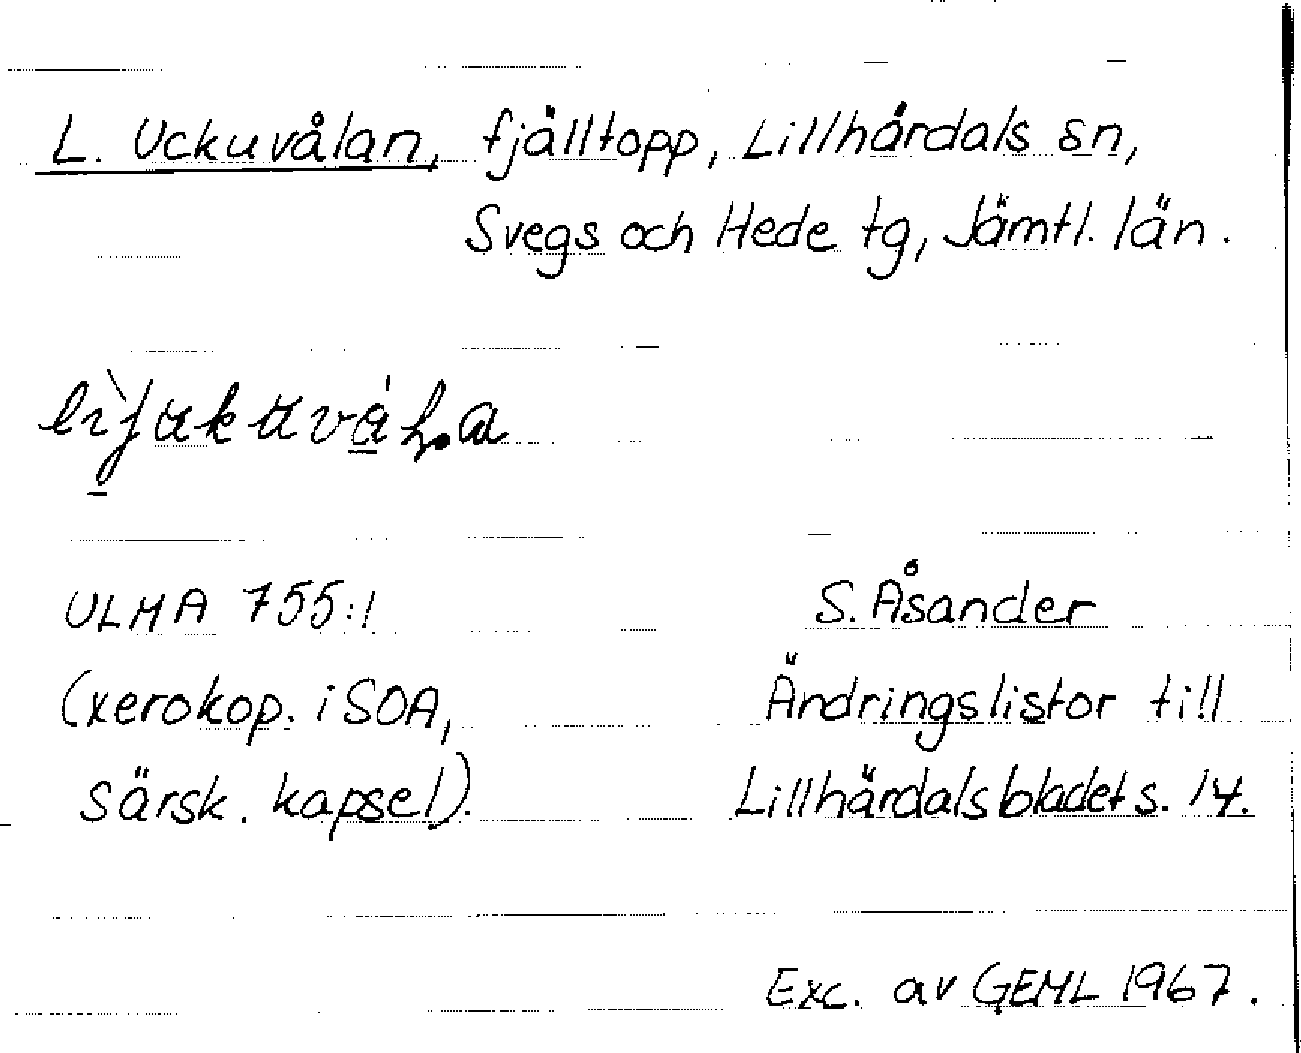 L. Uckuvålan, fjälltopp, Lillhärdals sn,
Svegs och Hede tg, Jämtl. län.
ULMA 755:1
(xerokop. i SOA,
särsk. kapsel).
S. Åsander
Ändringslistor till
Lillhärdalsbladet s. 14.
Exc. av GEHL 1967.